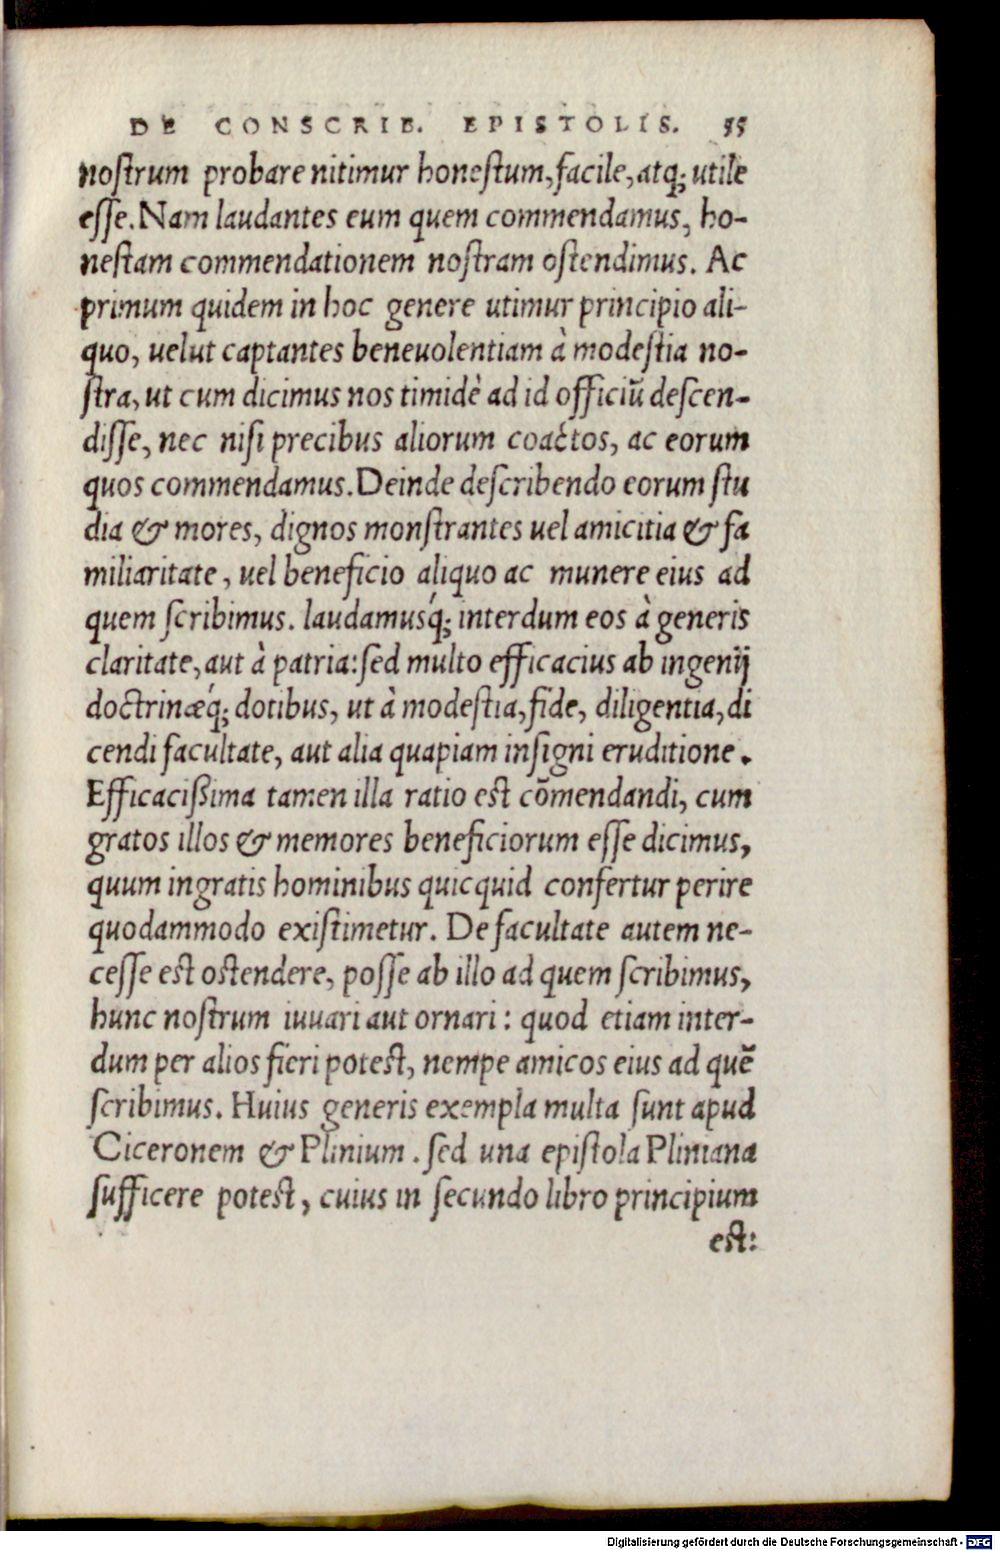 DE CONSCRIB. EPISTOLIS. 55
noſtrum probare nitimur honeſtum, facile, atq; utile
eſſe. Nam laudantes eum quem commendamus, ho-
neſtam commendationem noſtram oſtendimus. Ac
primum quidem in hoc genere utimur principio ali-
quo, uelut captantes beneuolentiam à modeſtia no-
ſtra, ut cum dicimus nos timidè ad id officiũ deſcen-
diſſe, nec niſi precibus aliorum coactos, ac eorum
quos commendamus. Deinde deſcribendo eorum ſtu
dia & mores, dignos monſtrantes uel amicitia & fa
miliaritate, uel beneficio aliquo ac munere eius ad
quem ſcribimus. laudamusq́; interdum eos à generis
claritate, aut à patria: ſed multo efficacius ab ingenij
doctrinæq́; dotibus, ut à modeſtia, fide, diligentia, di
cendi facultate, aut alia quapiam inſigni eruditione.
Efficacißima tamen illa ratio eſt cõmendandi, cum
gratos illos & memores beneficiorum eſſe dicimus,
quum ingratis hominibus quicquid confertur perire
quodammodo exiſtimetur. De facultate autem ne-
ceſſe eſt oſtendere, poſſe ab illo ad quem ſcribimus,
hunc noſtrum iuuari aut ornari: quod etiam inter-
dum per alios fieri poteſt, nempe amicos eius ad quẽ
ſcribimus. Huius generis exempla multa ſunt apud
Ciceronem & Plinium. ſed una epiſtola Pliniana
ſufficere poteſt, cuius in ſecundo libro principium
eſt:
Digitalisierung gefördert durch die Deutsche Forschungsgemeinschaft - DFG